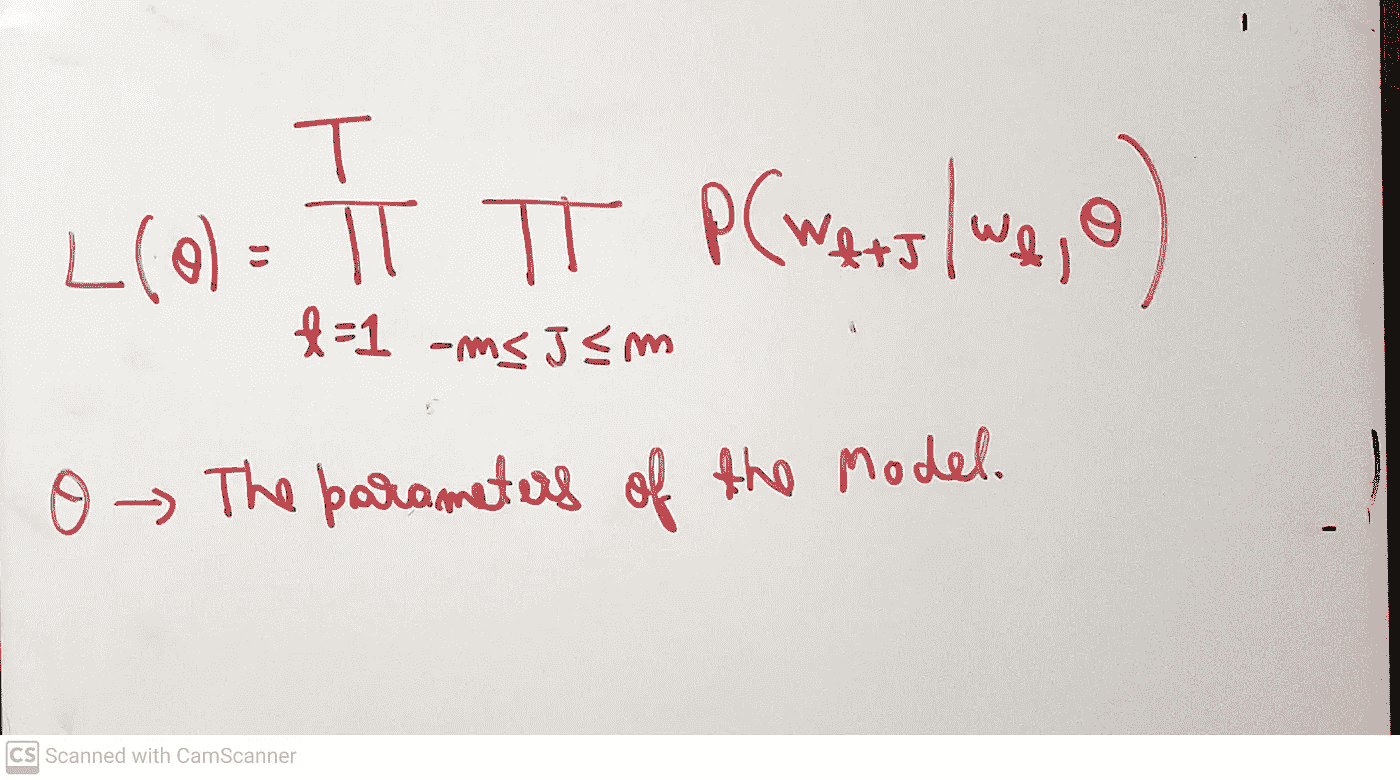 T
L(θ) = ∏ ∏ P(w_{t+J} | w_t, θ)
t=1 -m≤J≤m
θ → The parameters of the Model.
CS Scanned with CamScanner